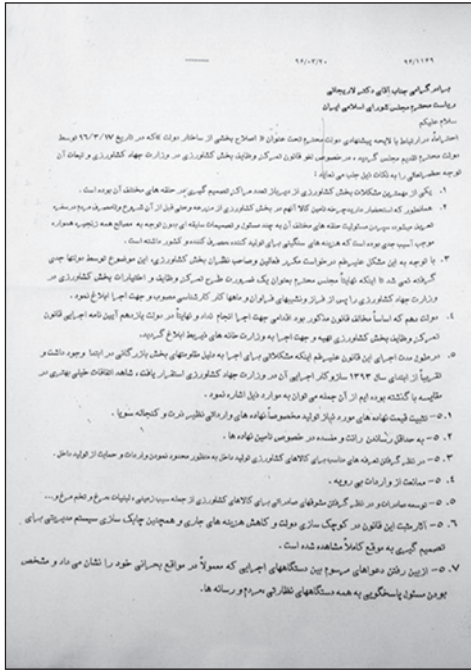 ۹۶/۰۳/۲۰ ۹۶/۱۱۴۹
برادر گرامی جناب آقای دکتر لاریجانی
ریاست محترم مجلس شورای اسلامی ایران
سلام علیکم
احتراماً در ارتباط با لایحه پیشنهادی دولت محترم تحت عنوان « اصلاح بخشی از ساختار دولت »که در تاریخ ۹۶/۳/۱۷ توسط
دولت محترم تقدیم مجلس گردید ، در خصوص لغو قانون تمرکز وظایف بخش کشاورزی در وزارت جهاد کشاورزی و تبعات آن
توجه حضرتعالی را به نکات ذیل جلب می نماید :
۱. یکی از مهمترین مشکلات بخش کشاورزی از دیرباز تعدد مراکز تصمیم گیری در حلقه های مختلف آن بوده است .
۲. همانطور که استحضار دارید چرخه تامین کالا آنهم در بخش کشاورزی از مزرعه وحتی قبل از آن شروع و تا مصرف مردم در سفره
تعریف میشود. سپردن مسئولیت حلقه های مختلف آن به چند مسئول و تصمیمات سلیقه ای بدون توجه به مصالح همه زنجیره همواره
موجب آسیب جدی بوده است که هزینه های سنگینی برای تولید کننده مصرف کننده و کشور داشته است .
۳. با توجه به این مشکل علیرغم درخواست مکرر فعالین وصاحب نظران بخش کشاورزی، این موضوع توسط دولتها جدی
گرفته نمی شد تا اینکه نهایتاً مجلس محترم بعنوان یک ضرورت طرح تمرکز وظایف و اختیارات بخش کشاورزی در
وزارت جهاد کشاورزی را پس از فراز ونشیبهای فراوان و ماهها کار کارشناسی مصوب و جهت اجرا ابلاغ نمود .
۴. دولت دهم که اساساً مخالف قانون مذکور بود اقدامی جهت اجرا انجام نداد و نهایتاً در دولت یازدهم آیین نامه اجرایی قانون
تمرکز وظایف بخش کشاورزی تهیه و جهت اجرا به وزارت خانه های ذیربط ابلاغ گردید.
۵. در طول مدت اجرای این قانون علیرغم اینکه مشکلاتی برای اجرا به دلیل مقاومتهای بخش بازرگانی در ابتدا وجود داشت و
تقریباً از ابتدای سال ۱۳۹۳ سازوکار اجرایی آن در وزارت جهاد کشاورزی استقرار یافت ، شاهد اتفاقات خیلی بهتری در
مقایسه با گذشته بوده ایم از آن جمله می توان به موارد ذیل اشاره نمود .
۵.۱- تثبیت قیمت نهاده های مورد نیاز تولید مخصوصاً نهاده های وارداتی نظیر ذرت و کنجاله سویا .
۵.۲- به حداقل رساندن رانت و مفسده در خصوص تامین نهاده ها .
۵.۳- در نظر گرفتن تعرفه های مناسب برای کالاهای کشاورزی تولید داخل به منظور محدود نمودن واردات و حمایت از تولید داخل .
۵.۴- ممانعت از واردات بی رویه .
۵.۵- توسعه صادرات و در نظر گرفتن مشوقهای صادراتی برای کالاهای کشاورزی از جمله سیب زمینی ، لبنیات ،مرغ و تخم مرغ و....
۵.۶- آثار مثبت این قانون در کوچک سازی دولت و کاهش هزینه های جاری و همچنین چابک سازی سیستم مدیریتی برای
تصمیم گیری به موقع کاملاً مشاهده شده است .
۵.۷- از بین رفتن دعواهای مرسوم بین دستگاههای اجرایی که معمولاً در مواقع بحرانی خود را نشان می داد و مشخص
بودن مسئول پاسخگویی به همه دستگاههای نظارتی ،مردم و رسانه ها.